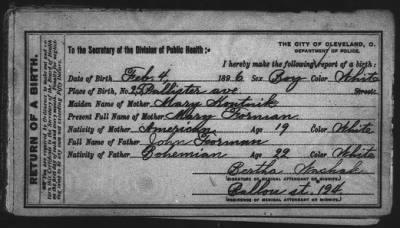 THE CITY OF CLEVELAND, O.
DEPARTMENT OF POLICE.
To the Secretary of the Division of Public Health:
I hereby make the following report of a birth:
Date of Birth Feb. 4, 1896 Sex Boy Color White
Place of Birth, No. 25 Pallister ave Street:
Maiden Name of Mother Mary
Present Full Name of Mother Mary Forman
Nativity of Mother American Age 19 Color White
Full Name of Father John Forman
Nativity of Father Bohemian Age 22 Color White
Bertha
(SIGNATURE OF MEDICAL ATTENDANT OR MIDWIFE)
Ballou st. 194.
(RESIDENCE OF MEDICAL ATTENDANT OR MIDWIFE)
RETURN OF A BIRTH.